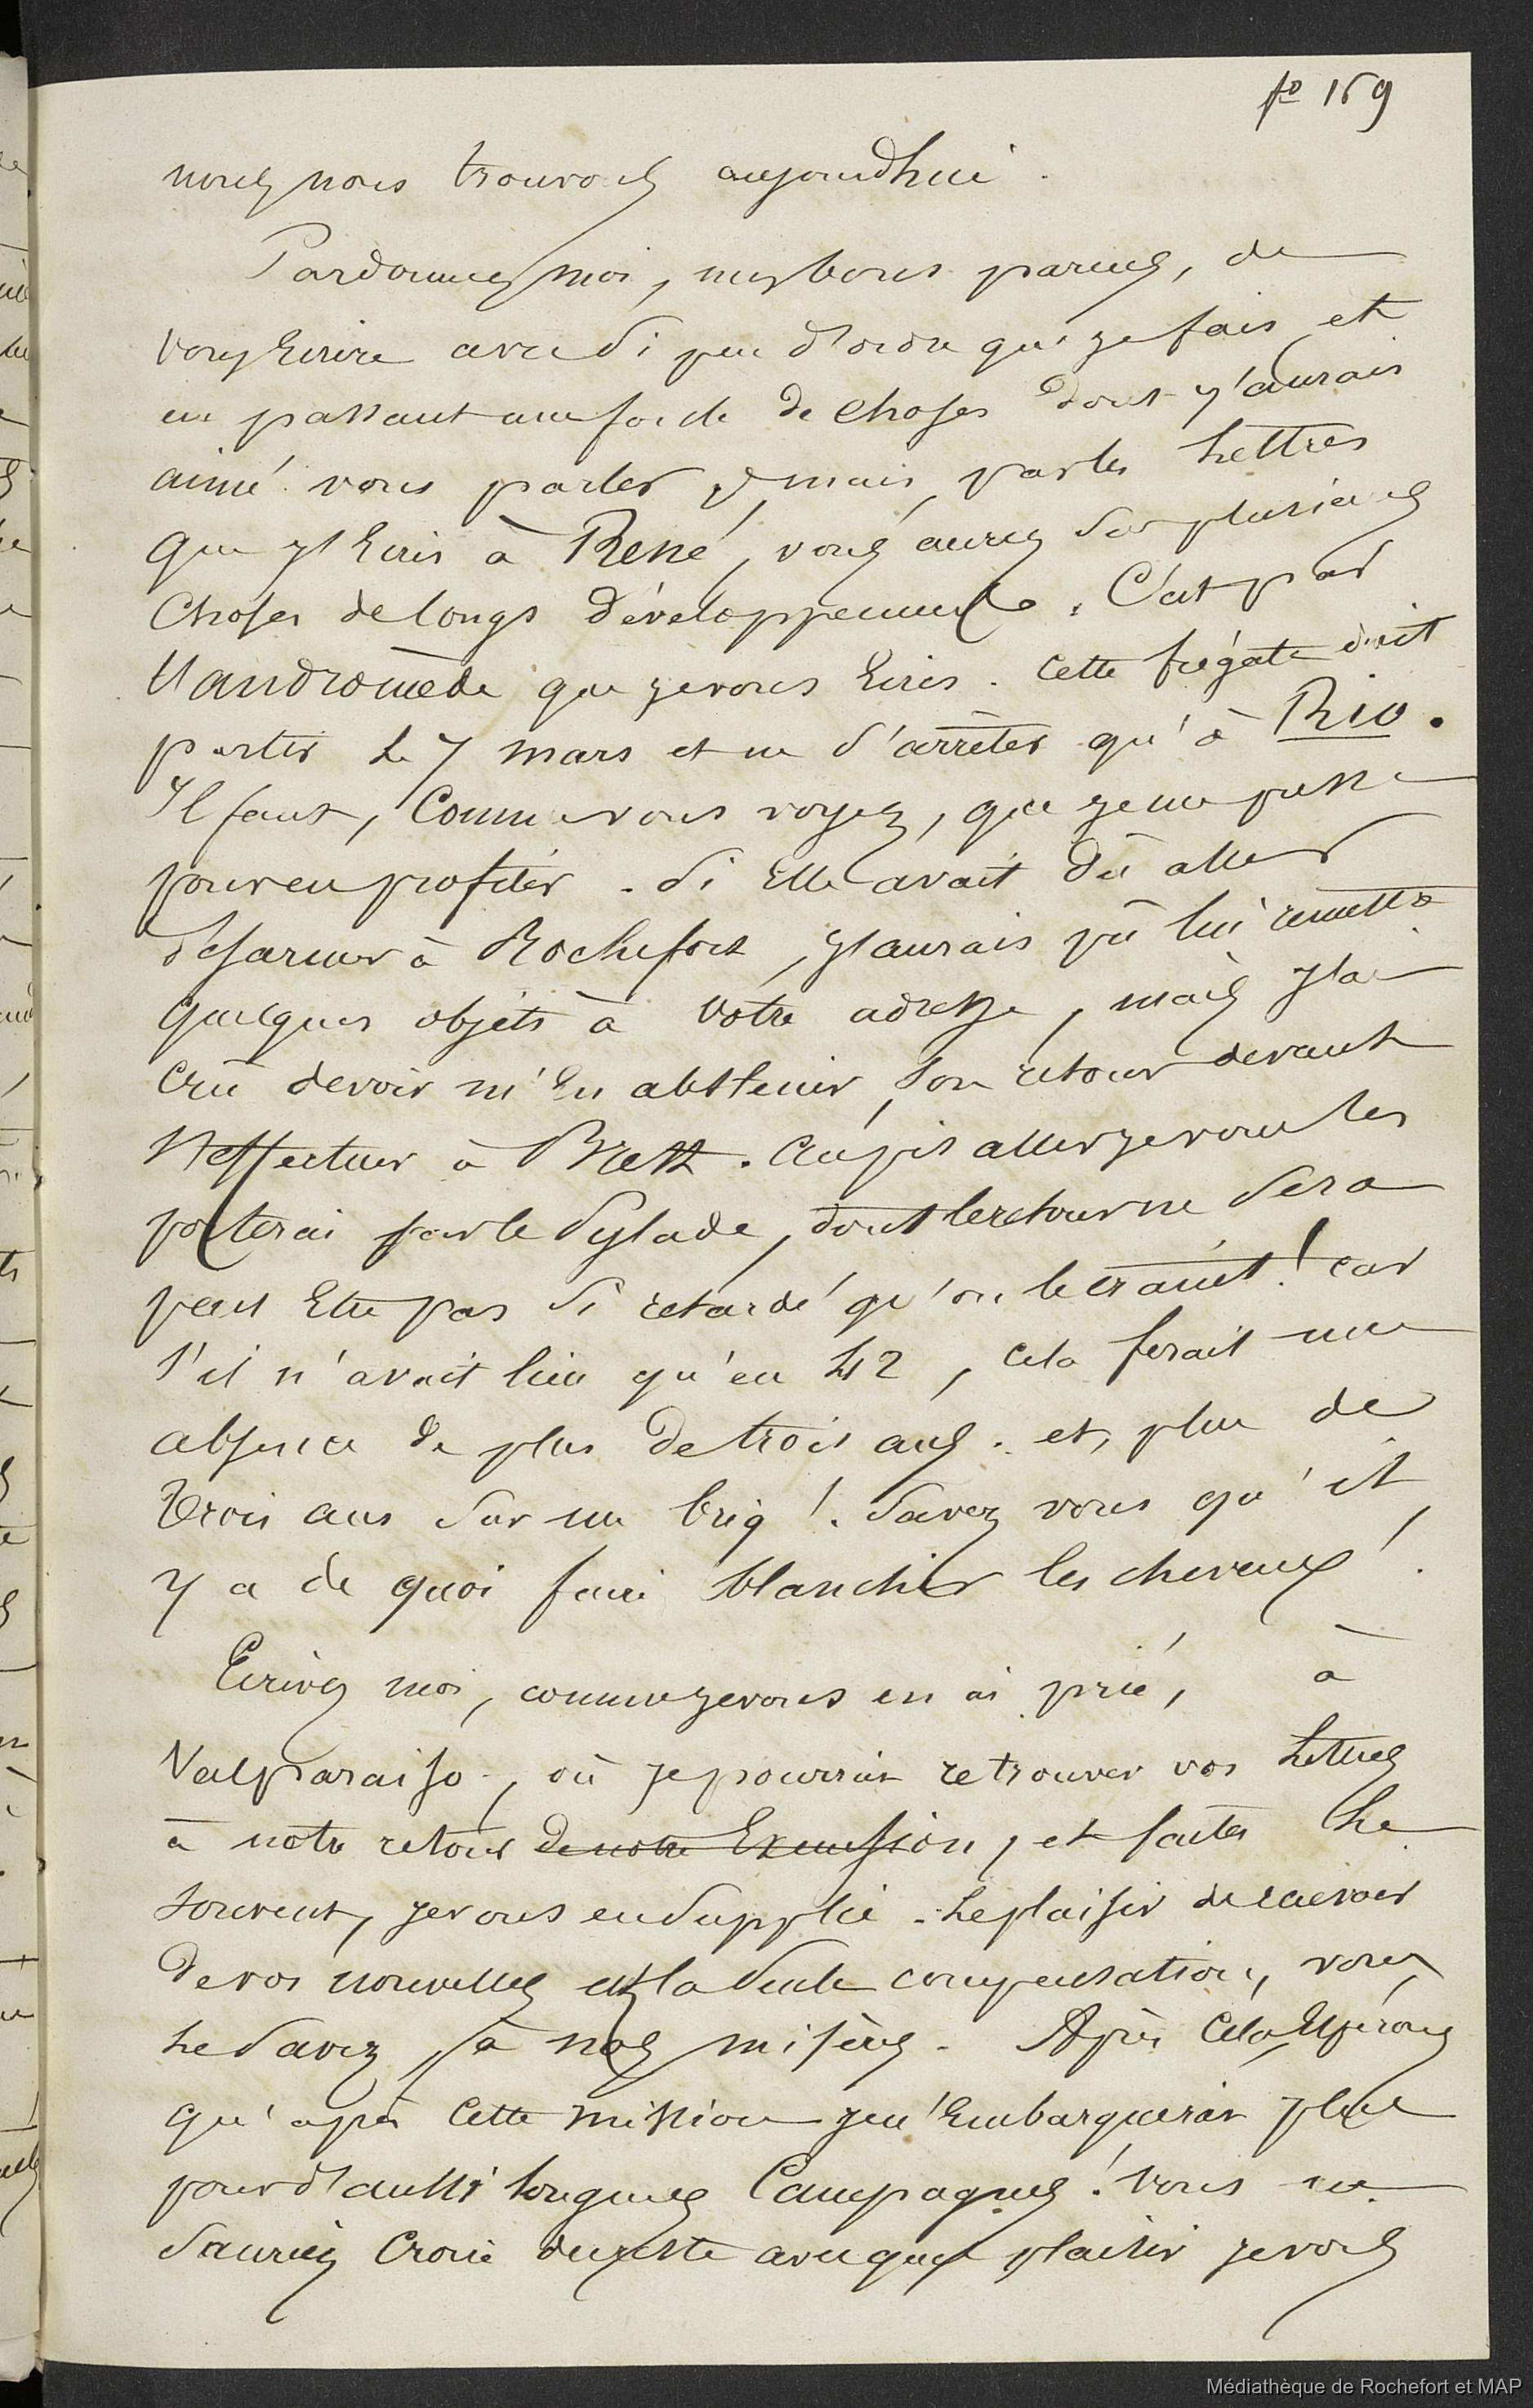 fo 169
nous nous trouvons aujourdhui.
Pardonnez moi, mes bons parens, de
vous Ecrire avec si peu d'ordre que je fais et
en passant une foule de choses dont j'aurais
aimé vous parler, mais, par les Lettres
que j'Ecris à René, vous aurez sur plusieurs
Choses de longs développements. C'est par
l'andromède que je vous Ecris. Cette frégate doit
partir le 7 mars et ne s'arrêter qu'à Rio.
Il faut, Comme vous voyez, que je me presse
pour en profiter. Si Elle avait dû aller
désarmer à Rochefort, j'aurais pû lui remettre
quelques objets à votre adresse, mais j'ai
crû devoir m'En abstenir, son retour devant
s'effectuer à Brest. au pis aller je vous les
porterai par le Pylade, dont le retour ne sera
peut Etre pas si retardé qu'on le craint! car
s'il n'avait lieu qu'en 42, cela ferait une
absence de plus de trois ans. et, plus de
trois ans sur un brig! Savez vous qu'il
y a de quoi faire blanchir les cheveux!
Ecrivez moi, comme je vous en ai prié, à
Valparaiso, où je pourrai retrouver vos Lettres
à notre retour de notre Excursion, et faites Le
souvent, je vous en supplie. Le plaisir de recevoir
de vos nouvelles est la seule compensation, vous
Le savez, à nos misères. Après Cela Espérons
qu'après Cette mission je n'Embarquerai plus
pour d'aussi longues Campagnes! Vous ne
sauriez Croire du reste avec quel plaisir je vois
Médiathèque de Rochefort et MAP